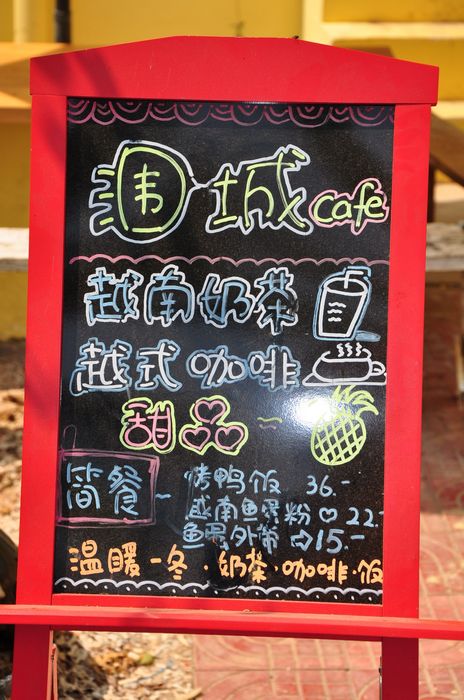 围·城cafe
越南奶茶
越式咖啡
甜品~
简餐~烤鸭饭 36.-
越南鱼蛋粉♡22.-
鱼蛋外带⇨15.-
温暖一冬·奶茶·咖啡·饭